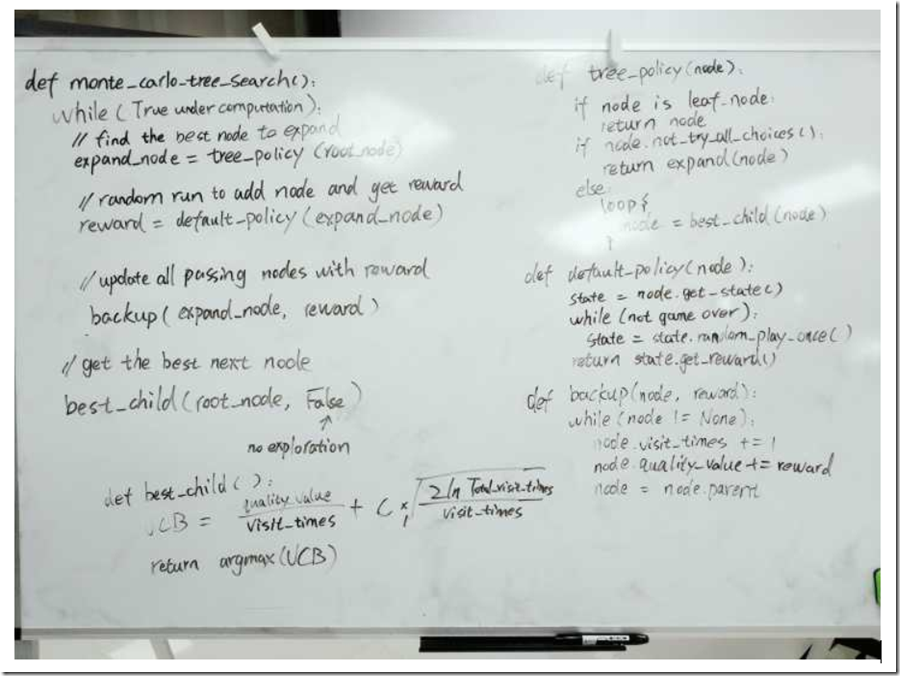 def monte_carlo_tree_search():
while (True under computation):
// find the best node to expand
expand_node = tree_policy (root_node)
// random run to add node and get reward
reward = default_policy (expand_node)
// update all passing nodes with reward
backup( expand_node, reward )
// get the best next node
best_child(root_node, False)
↑
no exploration
def best_child( ):
UCB = quality_value / visit_times + C × √(2 ln Total_visit_times / visit_times)
return argmax(UCB)
def tree_policy(node):
if node is leaf_node:
return node
if node.not_try_all_choices():
return expand(node)
else:
loop{
node = best_child(node)
}
def default_policy(node):
state = node.get_state()
while (not game over):
state = state.random_play_once()
return state.get_reward()
def backup(node, reward):
while (node != None):
node.visit_times += 1
node.quality_value += reward
node = node.parent